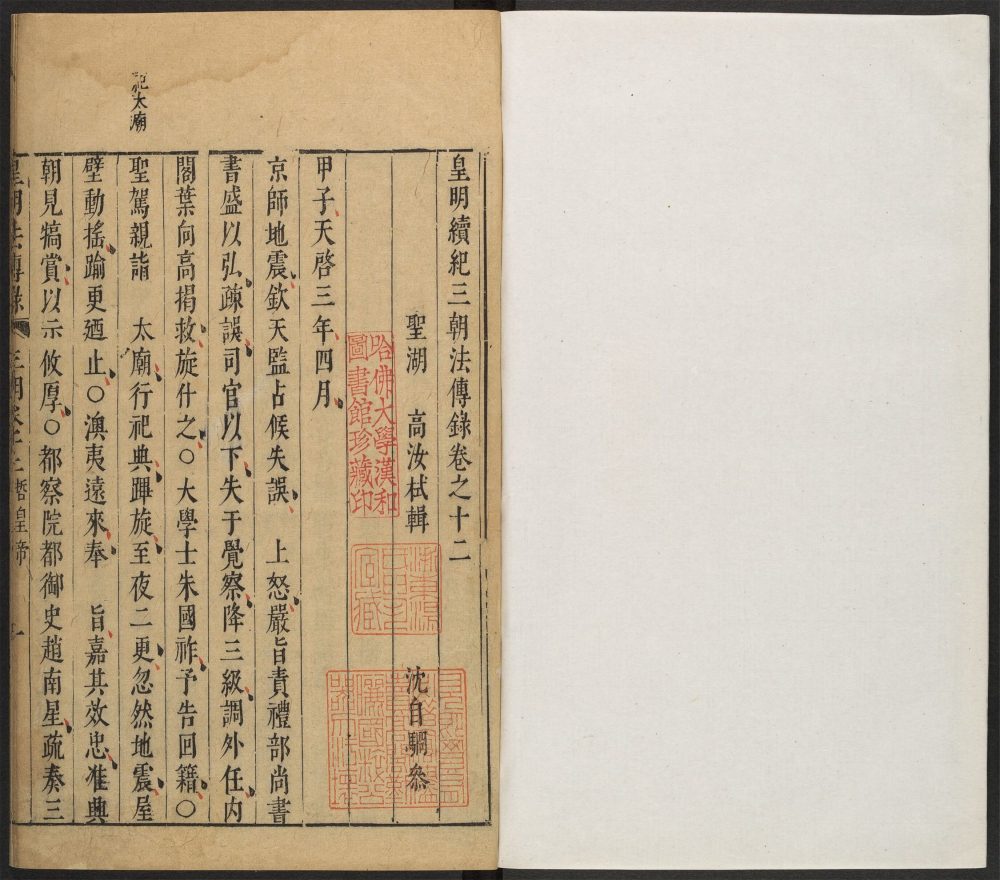 皇明續紀三朝法傳錄卷之十二
聖湖 高汝栻輯 沈自駉叅
甲子天啓三年四月
京師地震欽天監占候失誤 上怒嚴旨責禮部尚書
書盛以弘疎誤司官以下失于覺察降三級調外任内
閣葉向高揭救旋什之○大學士朱國祚予告回籍○
聖駕親詣 太廟行祀典蹕旋至夜二更忽然地震屋
壁動搖踰更廼止○澳夷遠來奉 旨嘉其效忠准典
朝見犒賞以示攸厚○都察院都御史趙南星疏奏三
皇明法傳錄 三朝卷十二 哲皇帝 一
祀太廟
哈佛大學漢和
圖書館珍藏印